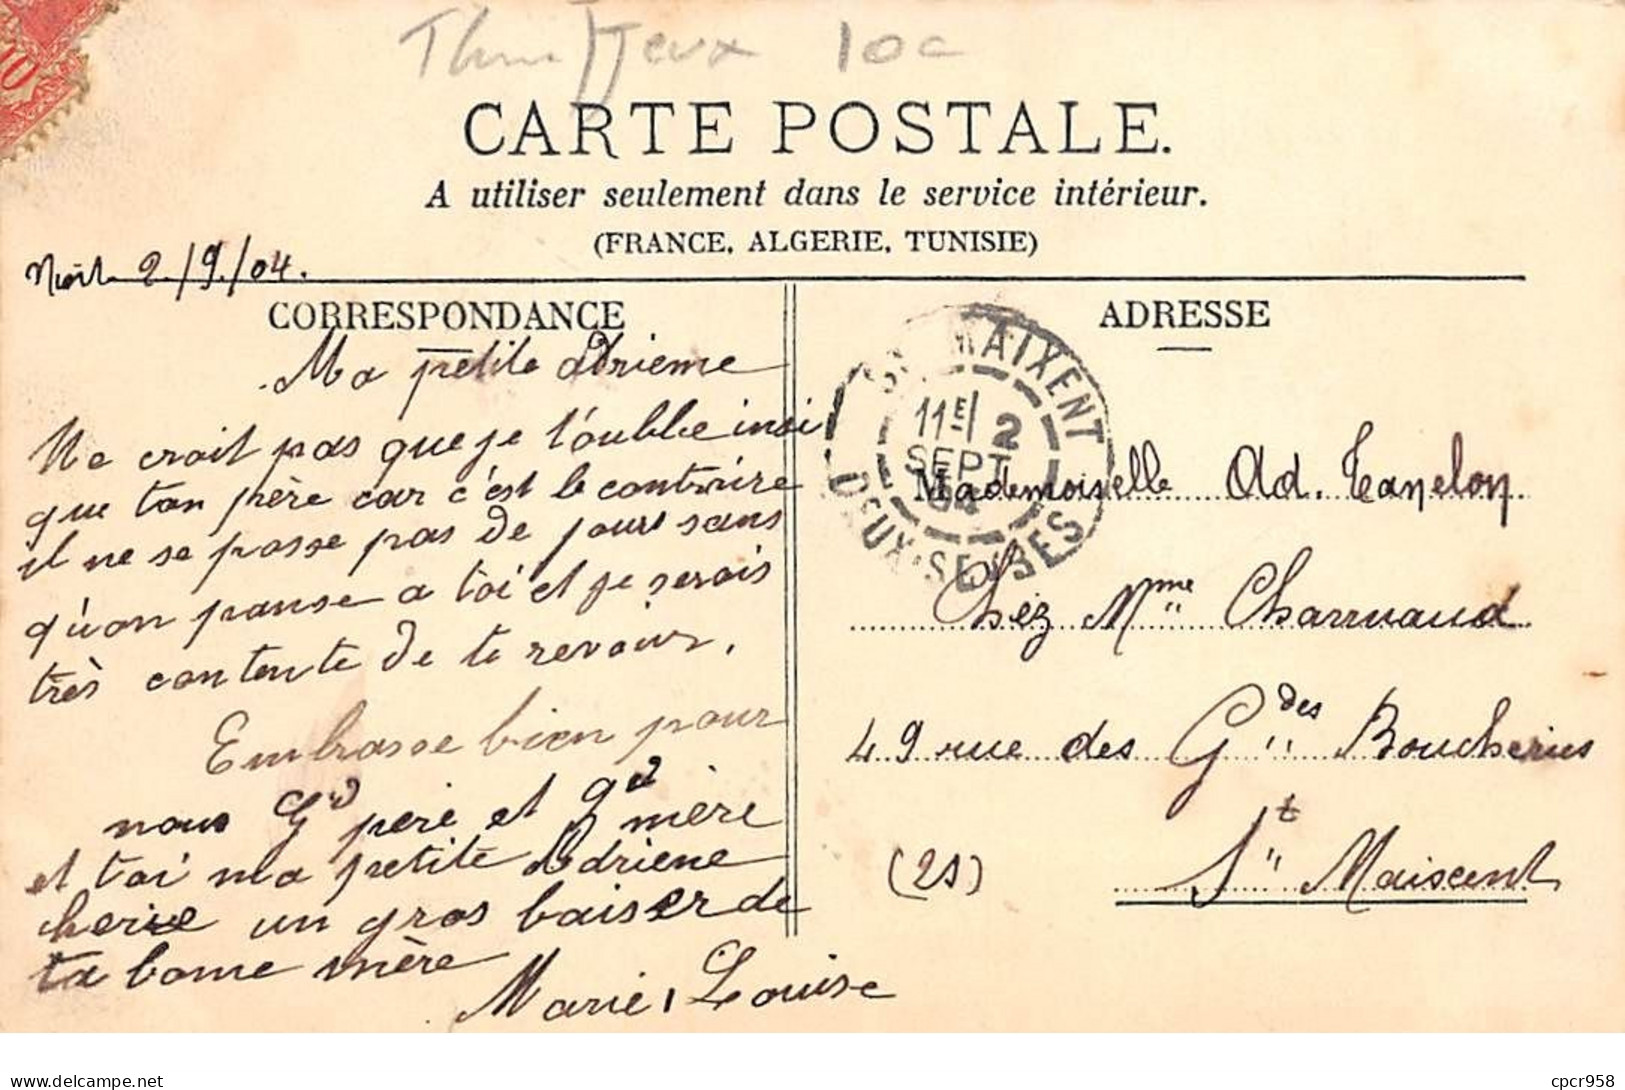 10c
CARTE POSTALE.
A utiliser seulement dans le service intérieur.
(FRANCE, ALGERIE, TUNISIE)
Niort 2/9/04.
CORRESPONDANCE
Ma petite Adrienne
Ne croit pas que je t'oublie insi
que ton père car c'est le contraire
il ne se passe pas de jours sans
qu'on panse a toi et je serais
très contente de te revoir.
Embrasse bien pour
nous Gd père et gd mère
et toi ma petite Adriene
cherie un gros baiser de
ta bonne mère
Marie, Louise
ADRESSE
ST MAIXENT
11E 2
SEPT
04
DEUX-SEVRES
Mademoiselle Ad. Tanelon
Chez Mme Charruaud
49 rue des Gdes Boucheries
(2S) St Maixent
cpcr958